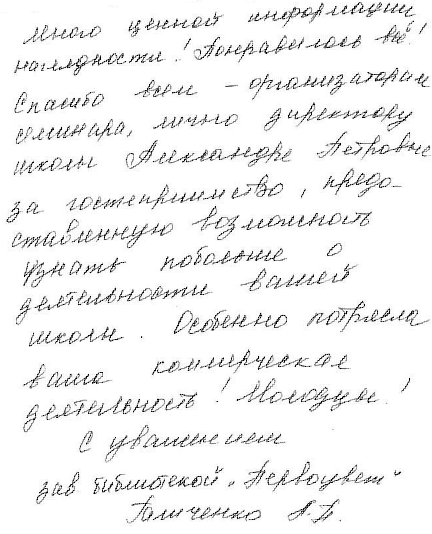 много ценной информации
наглядности! Понравилось всё!
Спасибо всем - организаторам
семинара, лично директору
школы Александре Петровне
за гостеприимство, предо-
ставленную возможность
узнать побольше о
деятельности вашей
школы. Особенно потрясла
ваша коммерческая
деятельность! Молодцы!
С уважением
зав библиотекой "Первоцвет"
Галиченко А.П.